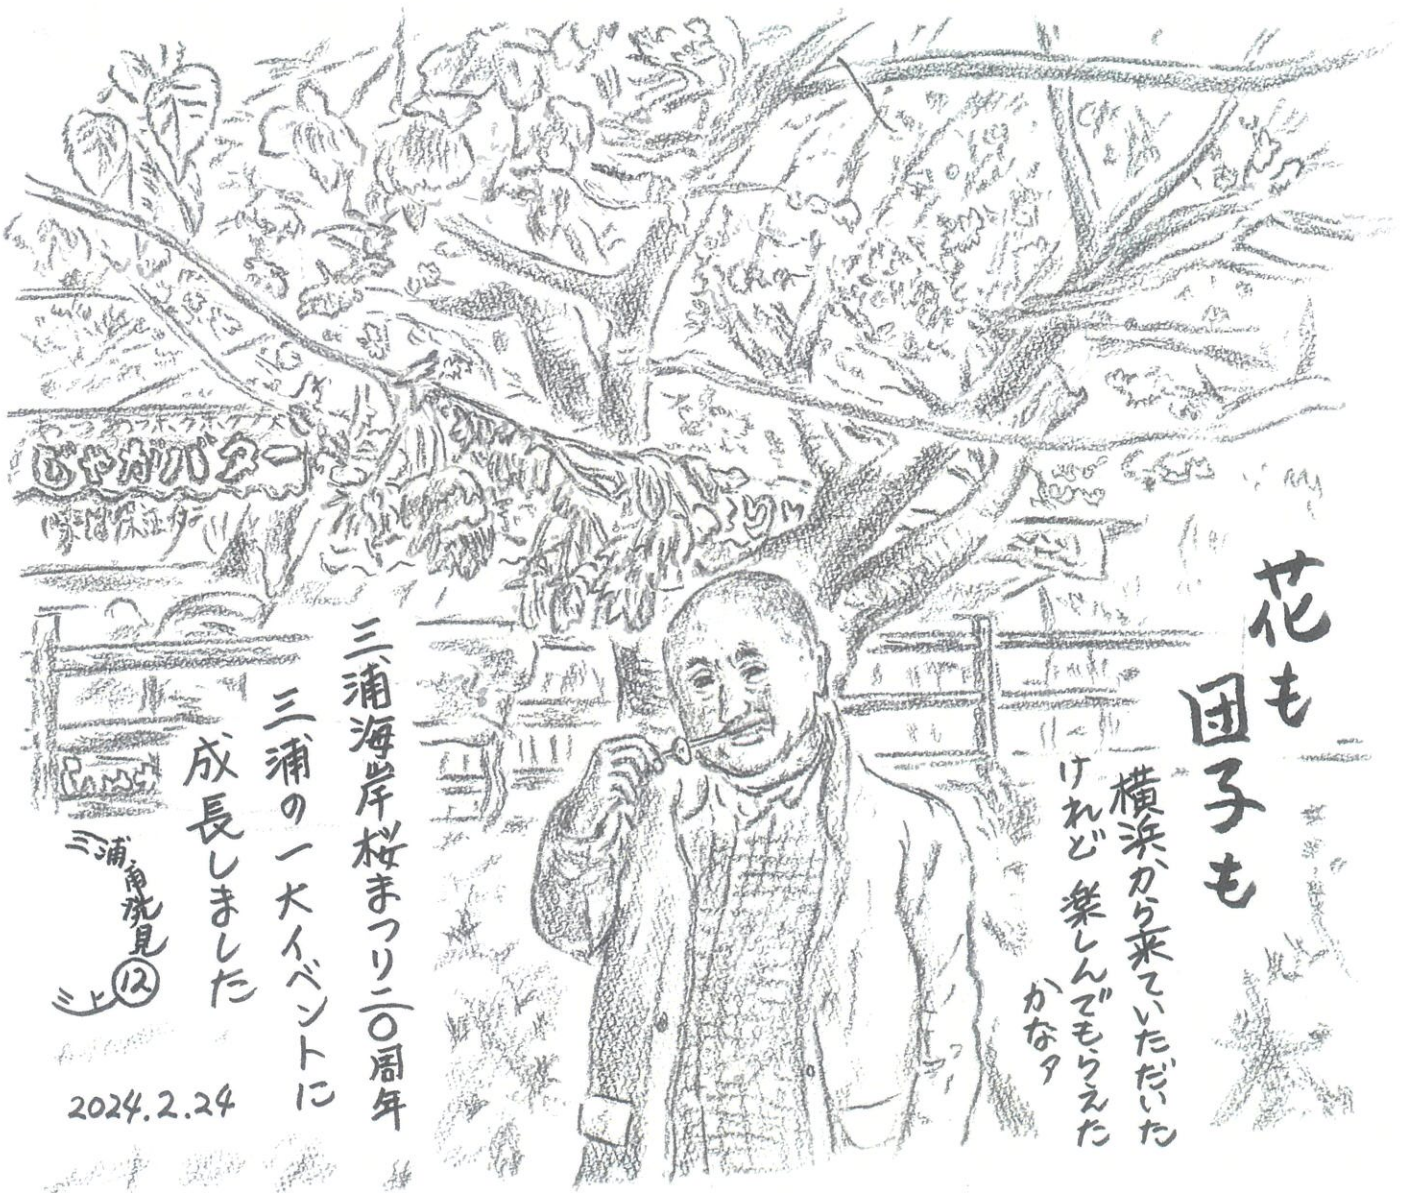 花も
団子も
横浜から来ていただいた
けれど 楽しんでもらえた
かなァ
三浦海岸桜まつり二〇周年
三浦の一大イベントに
成長しました
三浦再発見⑫
三上
2024.2.24
じゃがバター